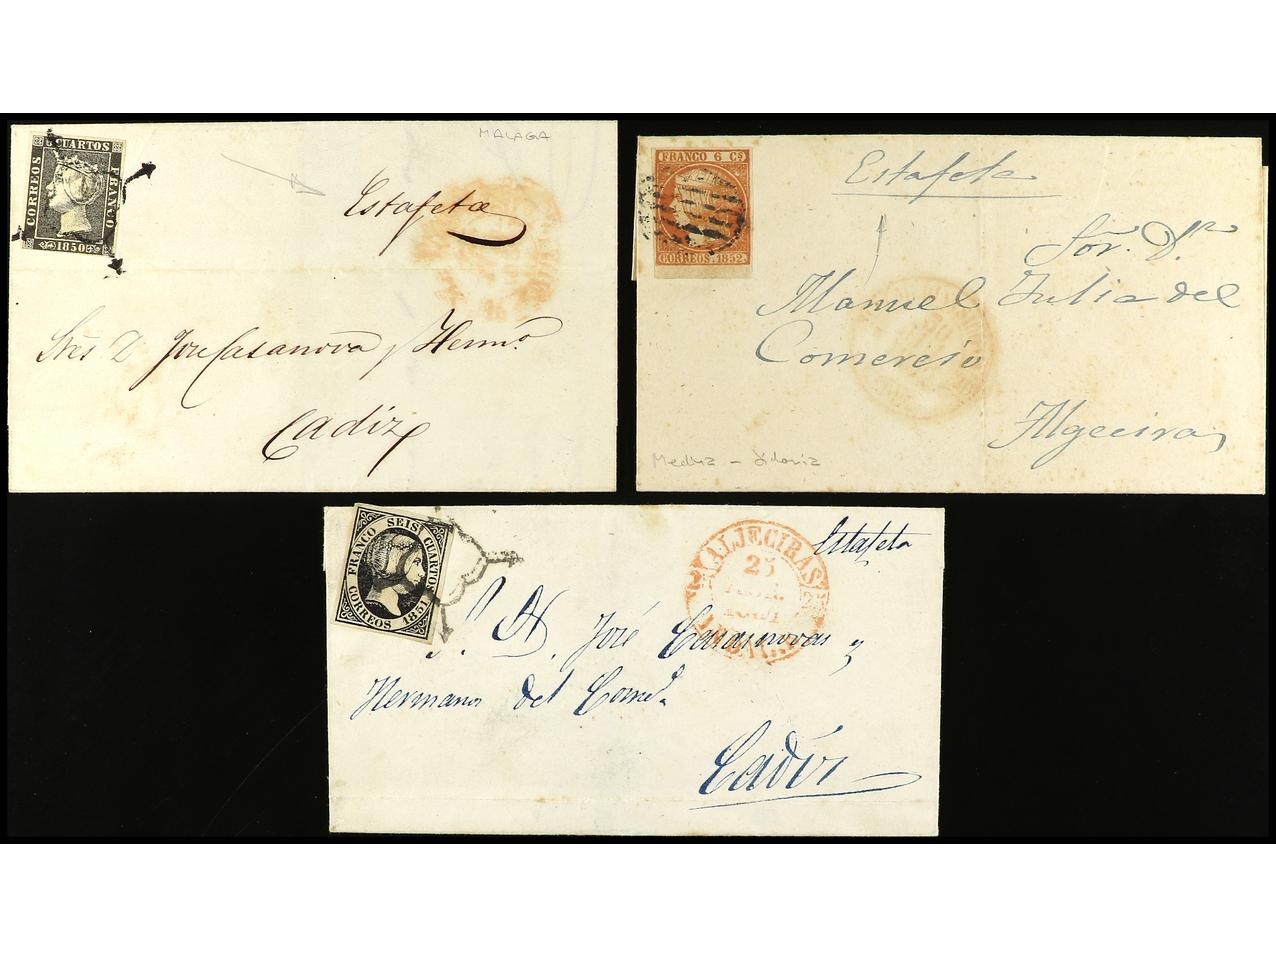 MALAGA
6 CUARTOS
FRANCO
CORREOS
1850
Estafeta
Sres D. Jose Casanova y Hermo.
Cadiz
FRANCO 6 Cs
CORREOS 1852.
Estafeta
Sor. Dn
Manuel Julia del
Comercio
Algeciras
Medina - Sidonia
FRANCO SEIS CUARTOS
CORREOS 1851
ALJECIRAS
25
Estafeta
José Casasnovas y
Hermanos del Como.
Cadiz